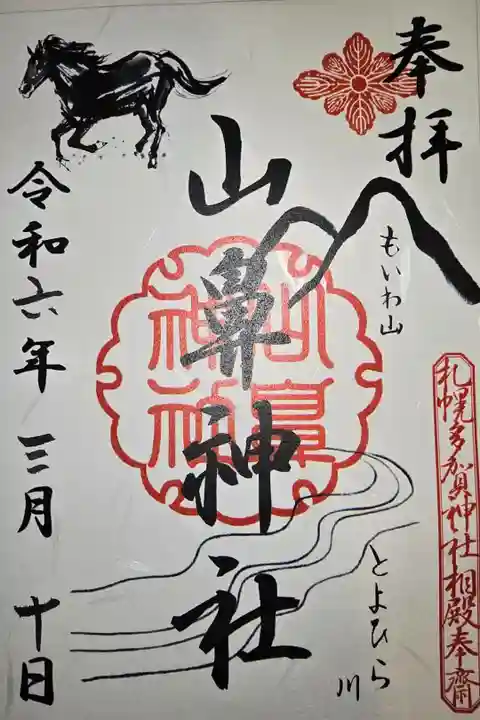 奉拝
もいわ山
札幌多賀神社相殿奉齋
山鼻神社
山鼻神社
とよひら川
令和六年三月十日